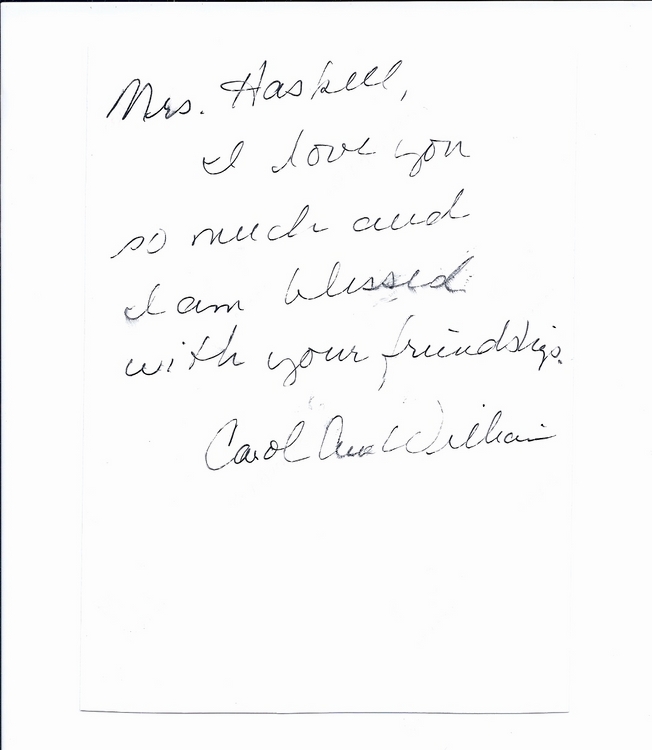 Mrs. Haskell,
I love you
so much and
I am blessed
with your friendship.
Carol